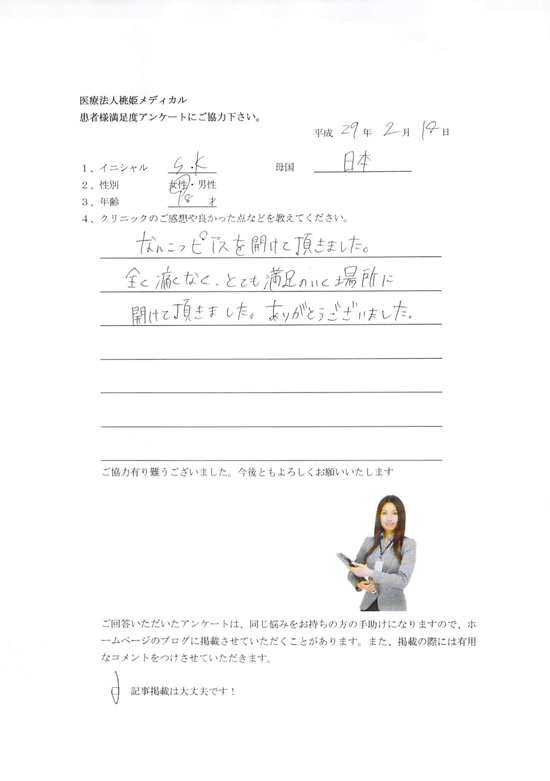 医療法人桃姫メディカル
患者様満足度アンケートにご協力下さい。
平成 29 年 2 月 14 日
1、イニシャル S.K 母国 日本
2、性別 女性・男性
3、年齢 才
4、クリニックのご感想や良かった点などを教えてください。
なんこつピアスを開けて頂きました。
全く痛くなく、とても満足のいく場所に
開けて頂きました。ありがとうございました。
ご協力有り難うございました。今後ともよろしくお願いいたします
ご回答いただいたアンケートは、同じ悩みをお持ちの方の手助けになりますので、ホ
ームページのブログに掲載させていただくことがあります。また、掲載の際には有用
なコメントをつけさせていただきます。
□ 記事掲載は大丈夫です！